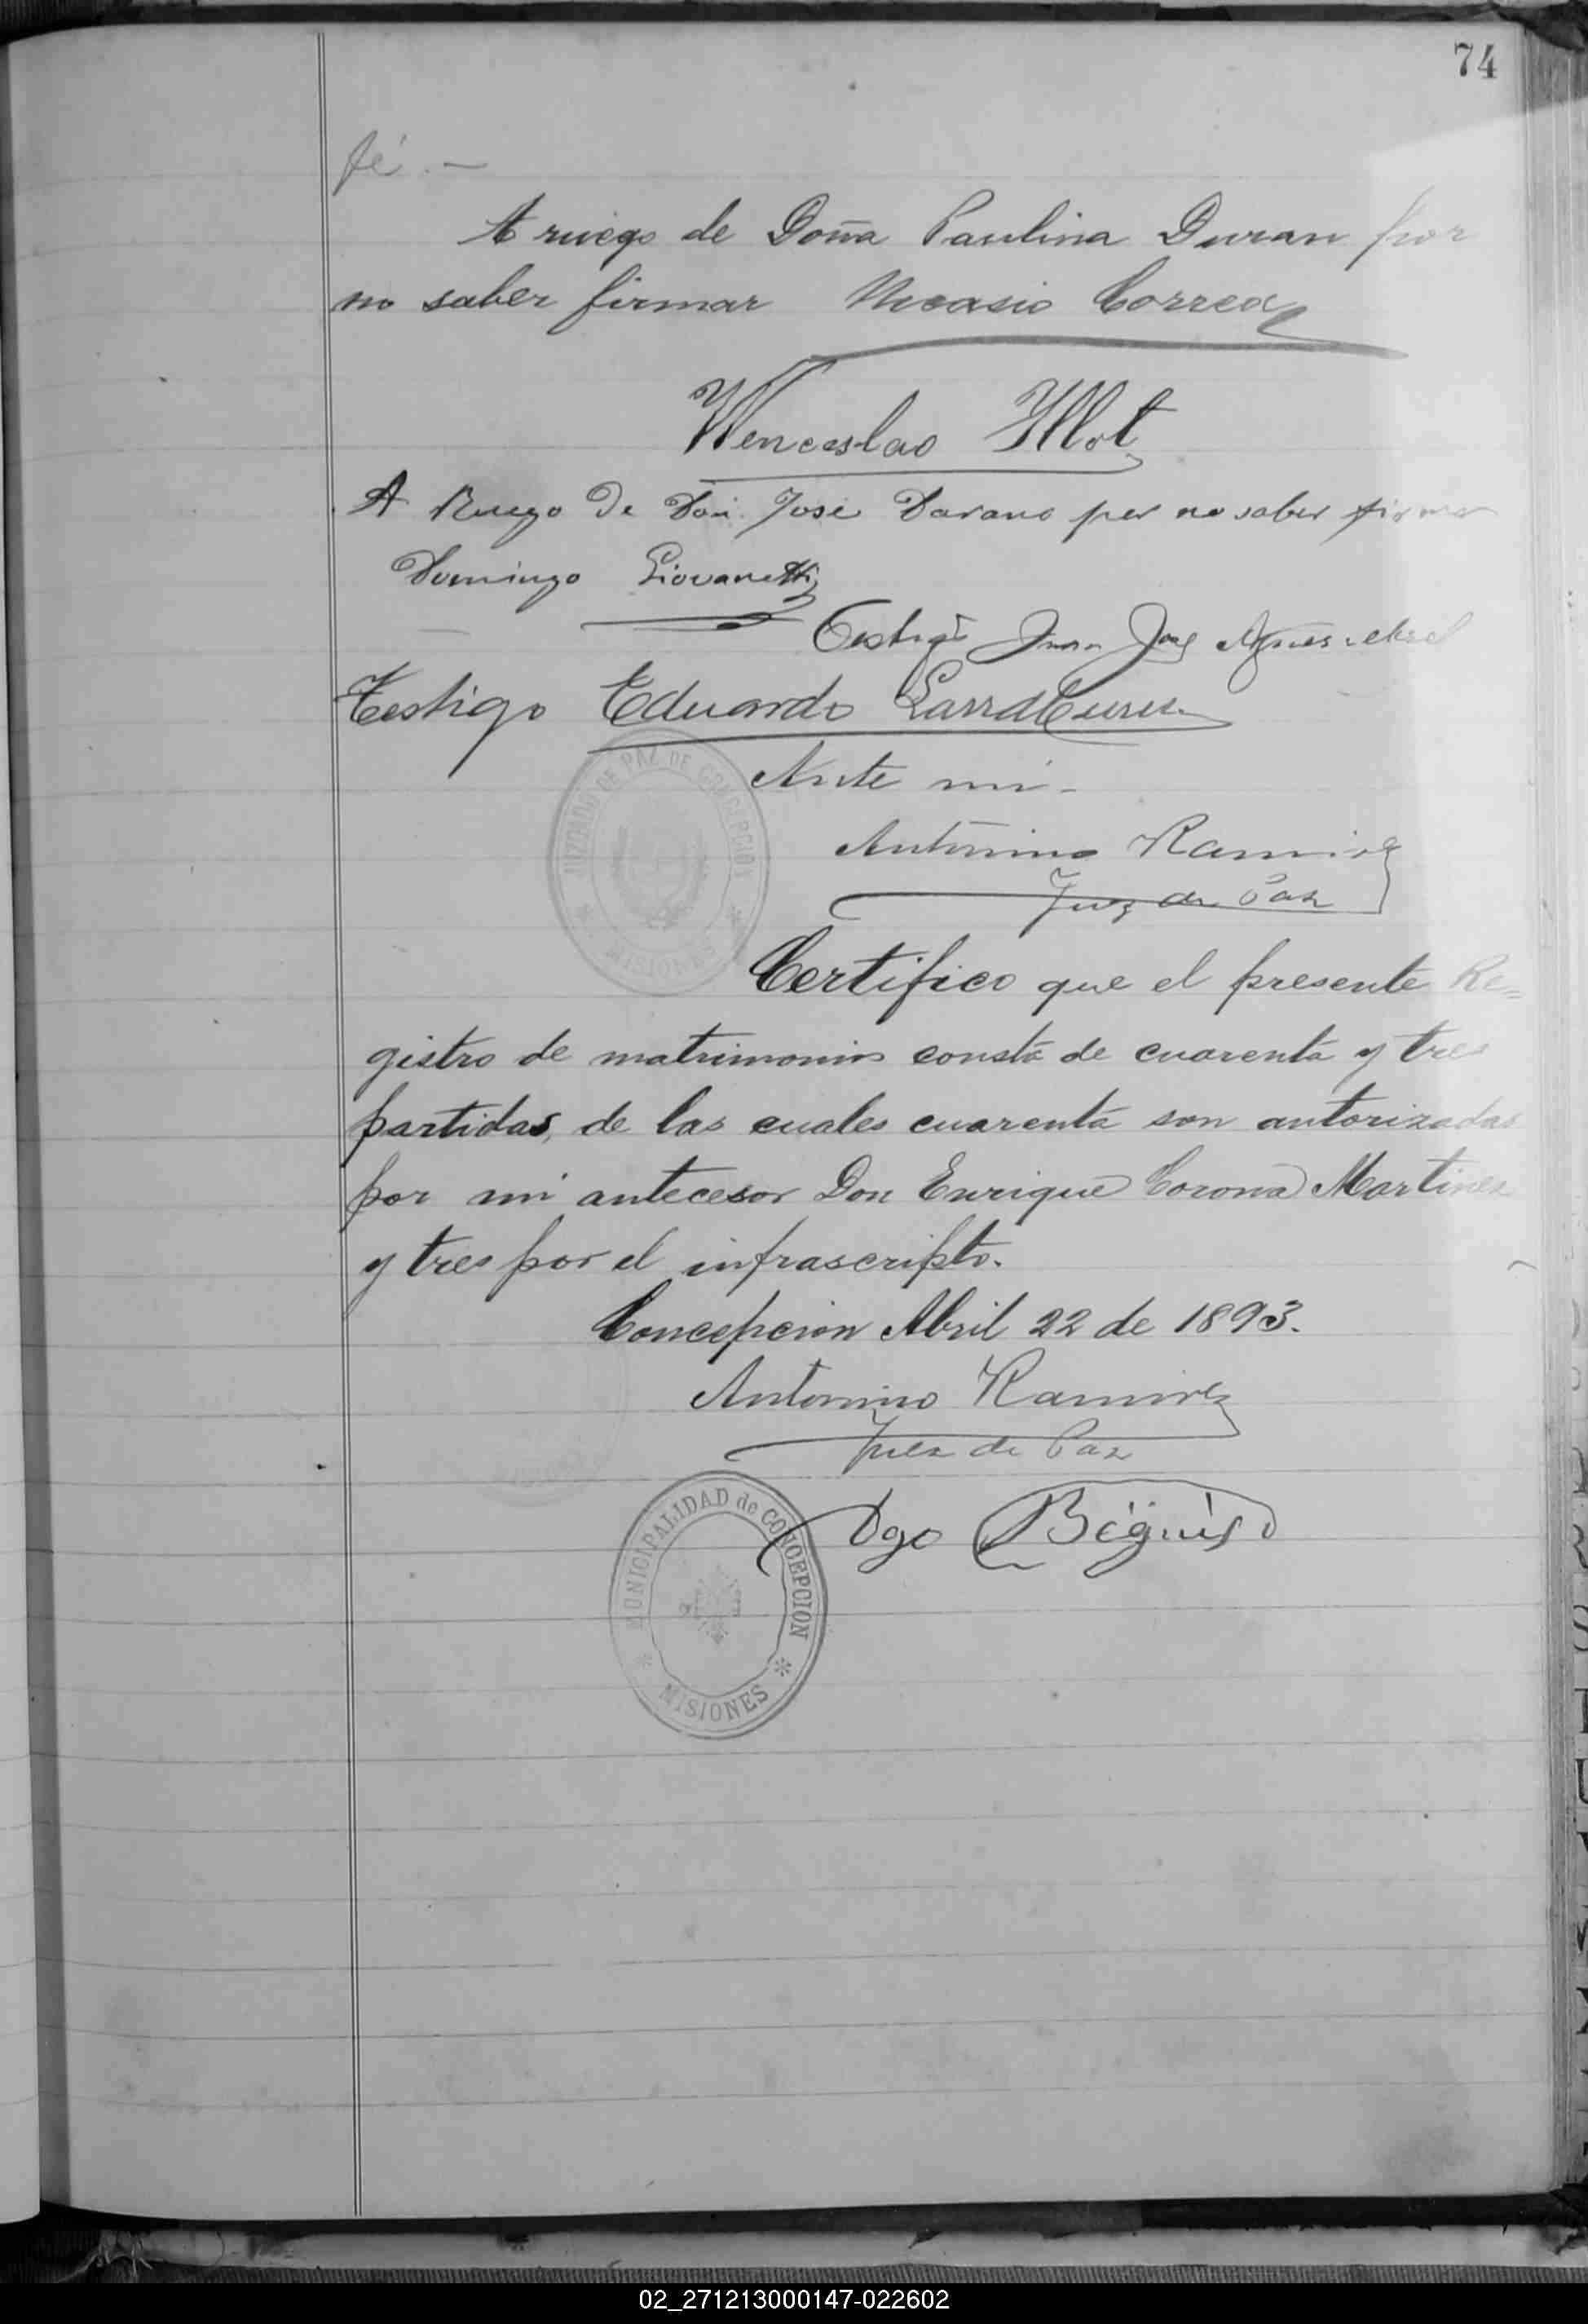 74
fé. —
A ruego de Doña Paulina Duran por
no saber firmar Nicasio Correa
Wenceslao Yllot
A Ruego De Don José Darano por no saber firmar
Domingo Giovanetti
Testigo Juan José
Testigo Eduardo
JUZGADO DE PAZ DE CONCEPCION
* MISIONES *
Ante mi -
Antonino Ramirez
Juez de Paz
Certifico que el presente Re=
gistro de matrimonios consta de cuarenta y tres
partidas, de las cuales cuarenta son autorizadas
por mi antecesor Don Enrique Corona Martinez
y tres por el infrascripto.
Concepcion Abril 22 de 1893.
Antonino Ramirez
Juez de Paz
Dgo
MUNICIPALIDAD de CONCEPCION
* MISIONES *
02_271213000147-022602